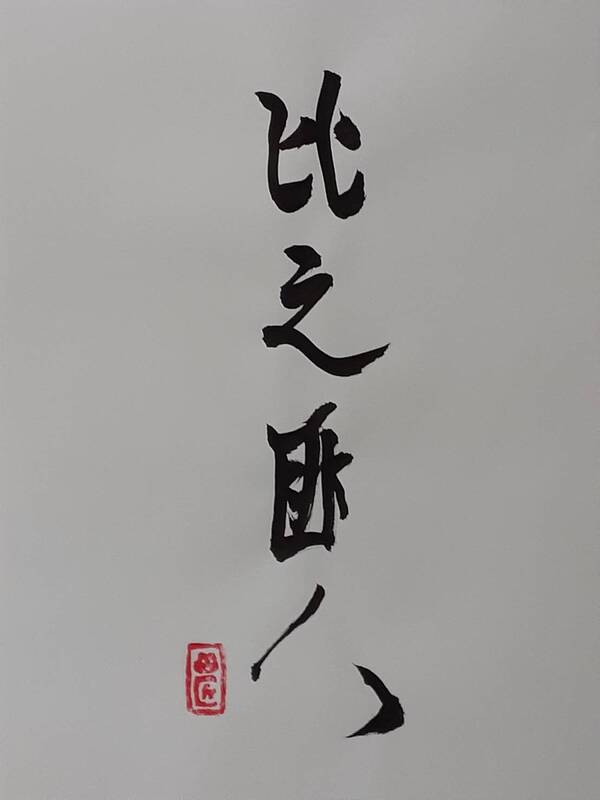 比之匪人